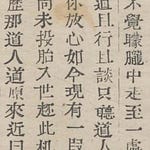 不覺矇矓中走至一處
道且行且談只聽道人
你放心如今現有一叚
尚未投胎入世趂此機
歷那道人道原來近日